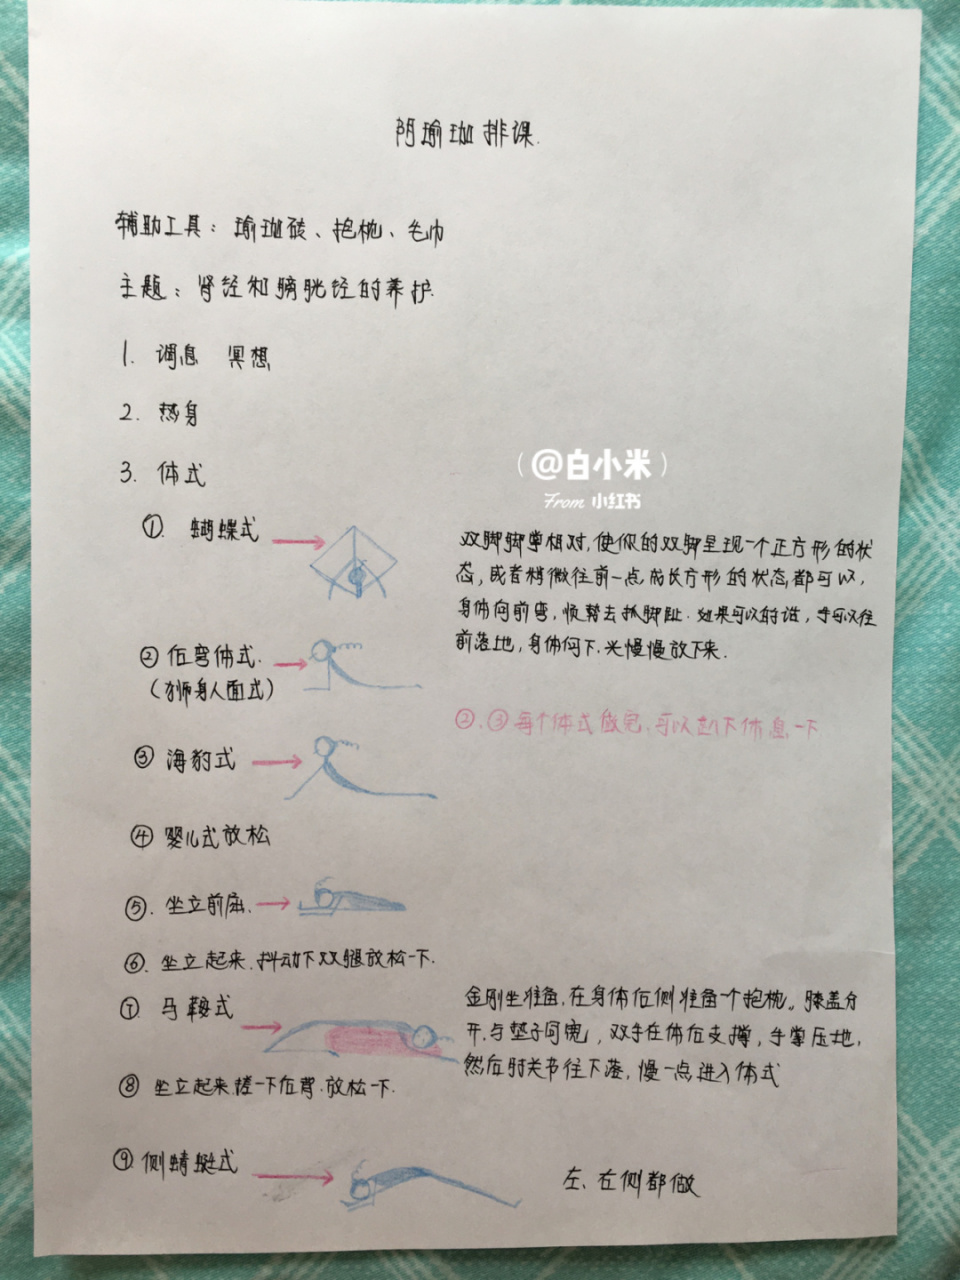 阴瑜珈排课.
辅助工具：瑜珈砖、抱枕、毛巾
主题：肾经和膀胱经的养护.
1. 调息 冥想
2. 热身
3. 体式
（@白小米）
From 小红书
①. 蝴蝶式
双脚脚掌相对,使你的双脚呈现一个正方形的状
态,或者稍微往前一点成长方形的状态都可以,
身体向前弯,顺带去抓脚趾.如果可以的话,手可以往
前落地,身体向下.米慢慢放下来.
② 后弯体式.
（狮身人面式）
②.③每个体式做完.可以趴下休息一下.
③ 海豹式
④ 婴儿式放松
⑤. 坐立前屈.
⑥. 坐立起来.抖动下双腿放松一下.
⑦ 马鞍式
金刚坐准备,在身体后侧准备一个抱枕。膝盖分
开.与垫子同宽,双手在体后支撑,手掌压地,
然后肘关节往下落,慢一点进入体式
⑧ 坐立起来.搓一下后背.放松一下.
⑨ 侧蜻蜓式
左、右侧都做